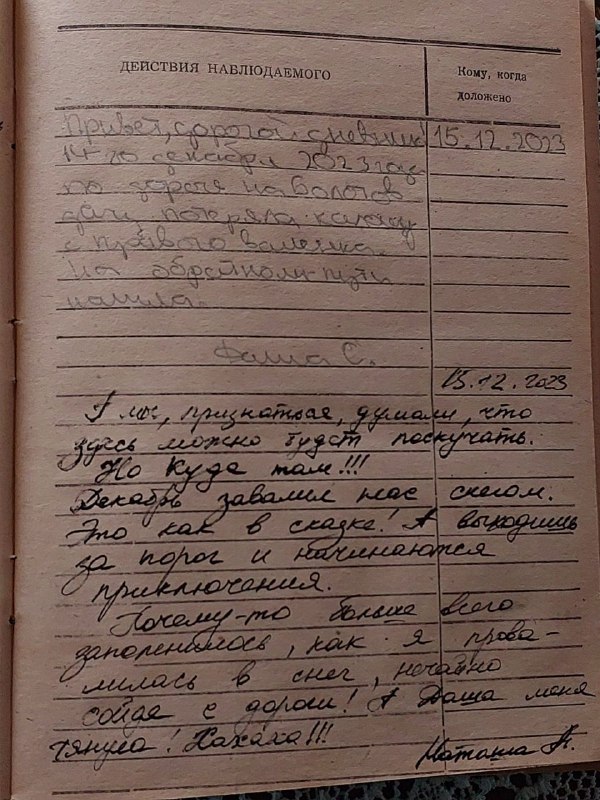 ДЕЙСТВИЯ НАБЛЮДАЕМОГО
Кому, когда
доложено
Привет, дорогой дневник! 15.12.2023
14-го декабря 2023 года
по дороге на болотов
дачу потеряла калошу
с правого валенка.
На обратном пути
нашла.
Даша С.
15.12.2023
А мы, признаться, думали, что
здесь можно будет поскучать.
Но куда там!!!
Декабрь завалил нас снегом.
Это как в сказке! А выходишь
за порог и начинаются
приключения.
Почему-то больше всего
запомнилось, как я прова-
лилась в снег, нечайно
сойдя с дороги! А Даша меня
тянула! Хахаха!!!
Наташа А.